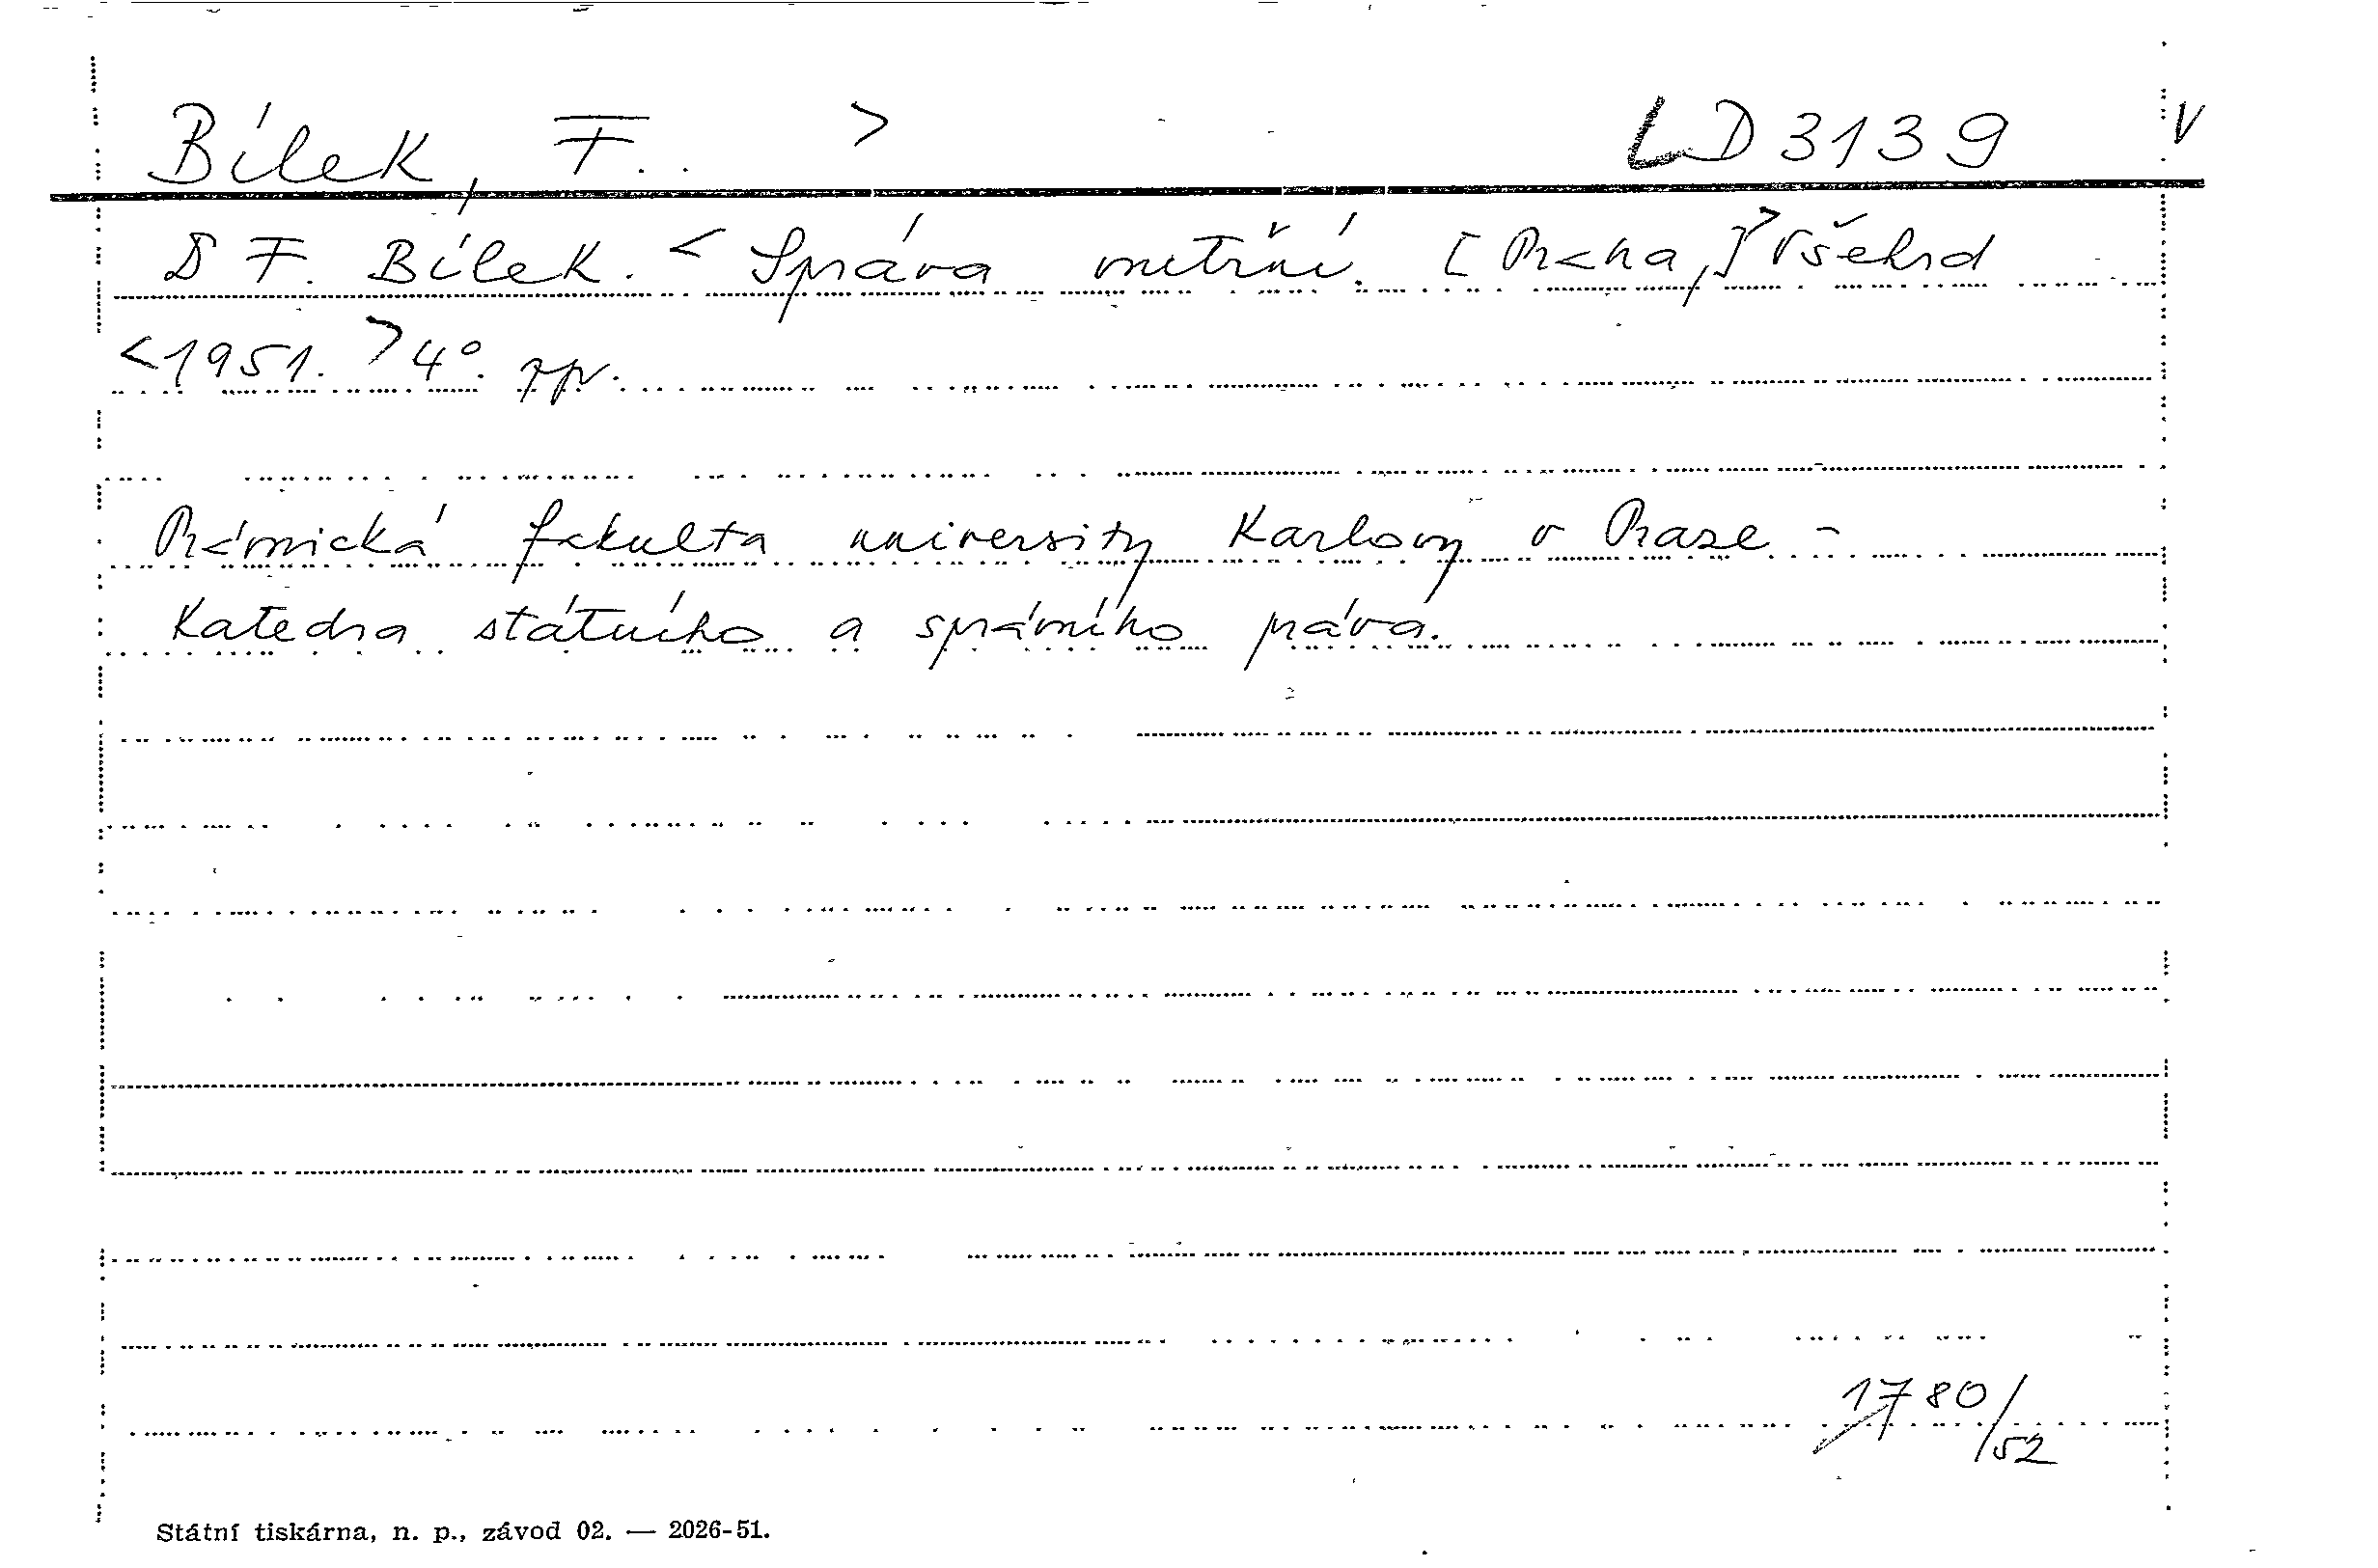 Bílek, F.. > LD 3139 V
F. Bílek. < Správa vnitřní. [Praha,]> Všehrd
<1951. > 4°.
Právnická fakulta university Karlovy v Praze –
Katedra státního a správního práva.
1780/52
Státní tiskárna, n. p., závod 02. — 2026-51.